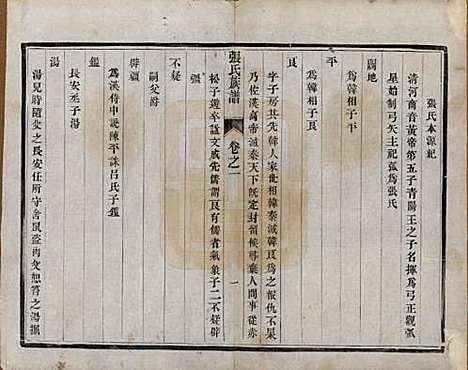 張氏本源紀
清河商音黃帝第五子青陽王之子名揮爲弓正觀弧
星始制弓矢主祀弧爲張氏
開地
爲韓相子平
平
爲韓相子良
良
字子房其先韓人家世相韓秦滅韓良爲之報仇不果
乃佐漢高帝滅秦天下既定封留侯尋棄人間事從赤
松子遊卒諡文成先儒謂良有儒者氣象子二不疑辟
張氏族譜
卷之一
一
彊
不疑
嗣父爵
辟彊
爲漢侍中説陳平誅呂氏子鑑
鑑
長安丞子湯
湯
湯兒時隨父之長安任所守舍鼠盜肉父怒笞之湯掘